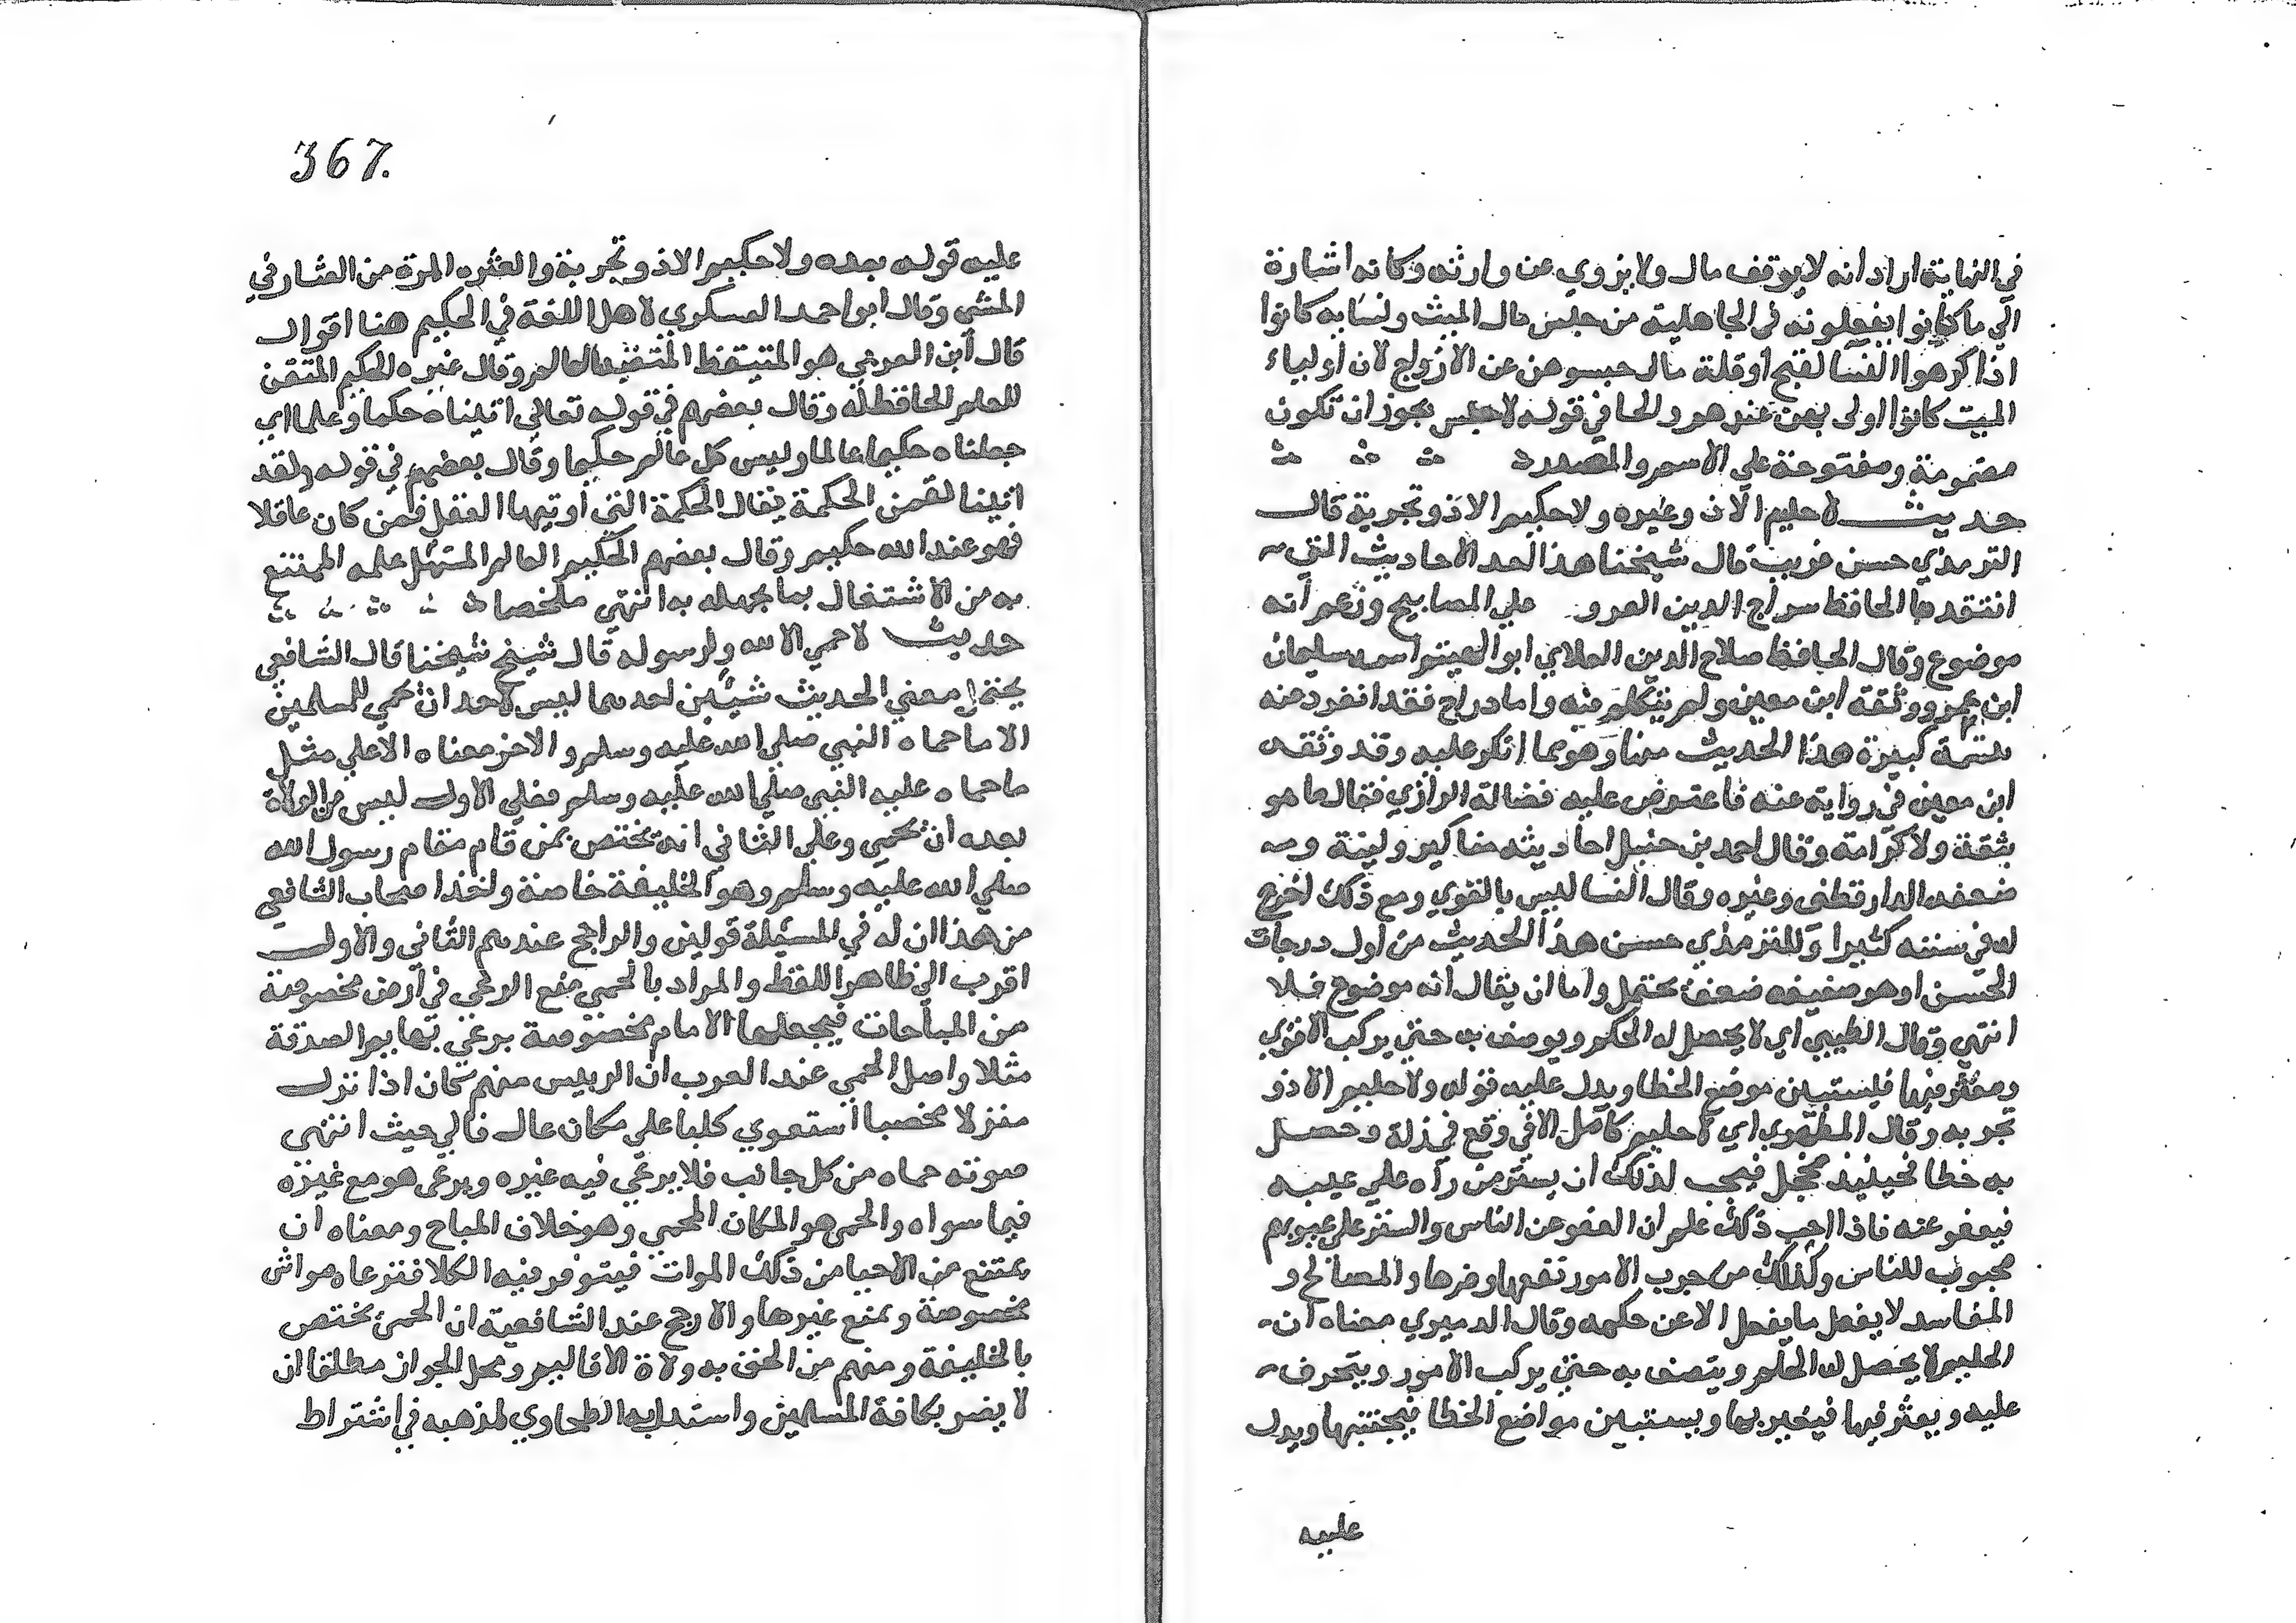 في النهاية اراد انه لا يوقف مال ولا يزوي عن وارثه وكانه اشارة
الي ما كانوا يفعلونه في الجاهلية من حبس مال الميت ونسايه كانوا
اذا كرهوا النسا لقبح أو قلة مال حبسوهن عن الازواج لان أولياء
الميت كانوا اولى بهن عندهم والحا في قوله لا حبس يجوز ان تكون
مضمومة ومفتوحة علي الاسم والمصدر
حديث لا حليم الا ذو عثره ولا حكيم الا ذو تجربة قال
الترمذي حسن غريب قال شيخنا هذا احد الاحاديث التي
انتقدها الحافظ سراج الدين علي المصابيح وزعم انه
موضوع وقال الحافظ صلاح الدين العلاي ابو الهيثم اسمه سليمان
ابن عمرو وثقه ابن معين ولم يتكلم فيه واما دراج فقد انفرد عنه
كبيرة هذا الحديث منها وهو مما انكر عليه وقد وثقه
ابن معين في رواية عنه فاعترض عليه فضالة الرازي فقال ما هو
بثقة ولا كرامة وقال احمد بن حنبل احاديثه مناكير ولينه و
ضعفه الدارقطني وغيره وقال النسا ليس بالقوي ومع ذلك اخرج
له في سننه كثيرا وللترمذي حسن هذا الحديث من أول درجات
الحسن او هو ضعيفه ضعف محتمل واما ان يقال انه موضوع فلا
انتهي وقال الطيبي اي لا يحصل له الحكم ويوصف به حتي يركب الامور
ويعثر فيها فيستبين موضع الخطا ويدل عليه قوله ولا حليم الا ذو
تجربه وقال المظهري اي لا حليم كامل الا في وقع في زلة وحصل
به خطا فحينئذ يخجل فيحب لذلك ان يستر من رآه علي عيبه
فيعفو عنه فاذا احب ذلك علم ان العفو عن الناس والستر علي عيوبهم
محبوب للناس وكذلك من جرب الامور نفعها وضرها والمصالح و
المفاسد لا يفعل ما يفعل الا عن حكمه وقال الدميري معناه ان
الحليم لا يحصل له الحلم ويتصف به حتي يركب الامور ويتحرف
عليه ويعثر فيها فيعبر بها ويستبين مواضع الخطا فيجتنبها ويدل
عليه
367.
عليه قوله بعده ولا حكيم الا ذو تجربة والعثره المرة من العثار في
المشي وقال ابو احمد العسكري لاهل اللغة في الحكيم هنا اقوال
قال ابن العربي هو المتيقظ المتنبه العالم وقال غيره الحكيم المتقن
للعلم الحافظ له وقال بعضهم في قوله تعالي اتيناه حكما وعلما اي
جعلناه حكيما عالما وليس كل عالم حكيما وقال بعضهم في قوله ولقد
اتينا لقمن الحكمة يقال الحكمة التي أوتيها العقل فمن كان عاقلا
فهو عند الله حكيم وقال بعضهم الحكيم العالم المستعمل علمه الممتنع
به من الاشتغال بما يجهله به انتهي ملخصا
حديث لا حمي الا لله ولرسوله قال شيخ شيخنا قال الشافعي
يحتمل معني الحديث شيئين احدهما ليس لاحد ان يحمي للمسلمين
الا ما حماه النبي صلي الله عليه وسلم والاخر معناه الا علي مثل
ما حماه عليه النبي صلي الله عليه وسلم فعلي الاول ليس من الولاة
بعده ان يحمي وعلي الثاني انه يختص بمن قام مقام رسول الله
صلي الله عليه وسلم وهو الخليفة خاصة واخذ اصحاب الشافعي
من هذا ان له في المسئلة قولين والراجح عندهم الثاني والاول
اقرب الي ظاهر اللفظ والمراد بالحمي منع الرعي في أرض مخصوصة
من المباحات فيجعلها الامام مخصوصة برعي بهايم الصدقة
مثلا واصل الحمي عند العرب ان الرييس منهم كان اذا نزل
منزلا مخصبا استعوي كلبا علي مكان عال فالي حيث انتهى
صوته حماه من كل جانب فلا يرعي فيه غيره ويرعى هو مع غيره
فيما سواه والحمي هو المكان المحمي وهو خلاف المباح ومعناه ان
يمتنع من الاحيا من ذلك الموات فيتوفر فيه الكلا فترعاه مواش
مخصوصة ويمنع غيرها والارجح عند الشافعية ان الحمي يختص
بالخليفة ومنهم من الحق به ولاة الاقاليم ومحل الجواز مطلقا ان
لا يضر بكافة المسلمين واستدل به الطحاوي لمذهبه في اشتراط